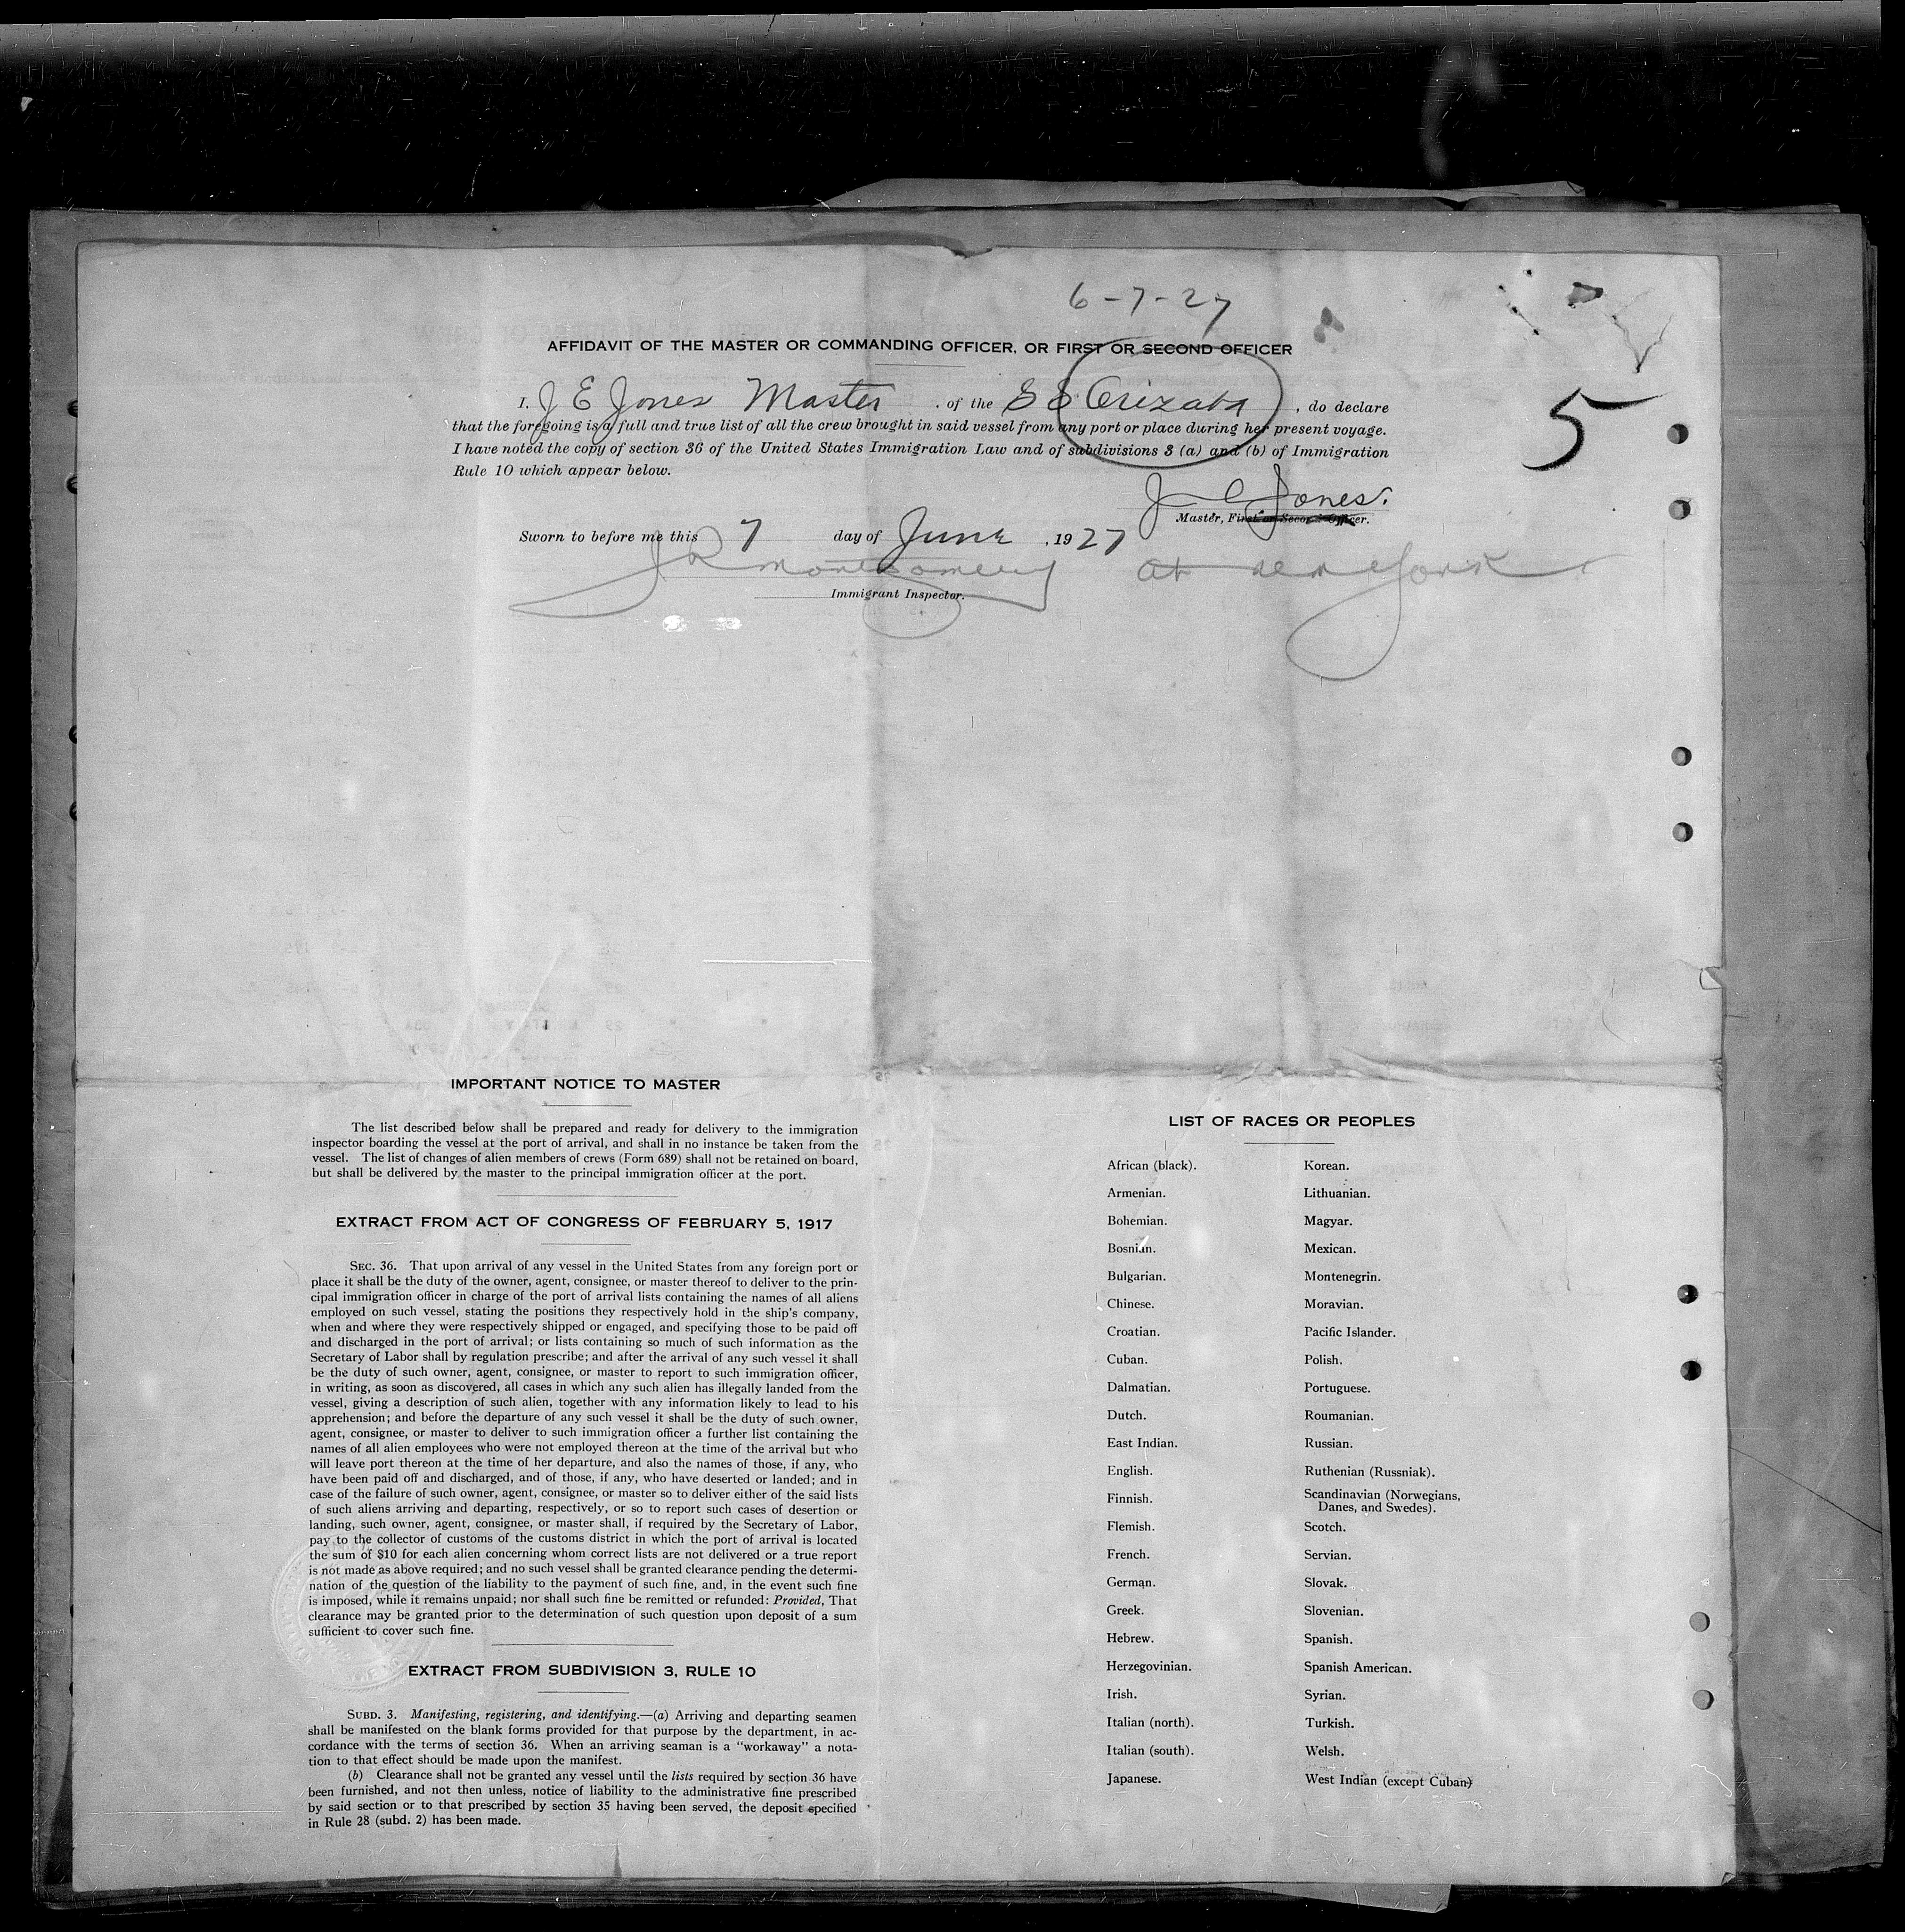 6-7-27
AFFIDAVIT OF THE MASTER OR COMMANDING OFFICER, OR FIRST OR SECOND OFFICER
I, J E Jones Master, of the SS Orizaba, do declare
that the foregoing is a full and true list of all the crew brought in said vessel from any port or place during her present voyage.
I have noted the copy of section 36 of the United States Immigration Law and of subdivisions 3 (a) and (b) of Immigration
Rule 10 which appear below.
5
J E Jones.
Master, First or Second Officer.
Sworn to before me this 7 day of June, 1927
J R Montgomery at New York
Immigrant Inspector.
IMPORTANT NOTICE TO MASTER
The list described below shall be prepared and ready for delivery to the immigration
inspector boarding the vessel at the port of arrival, and shall in no instance be taken from the
vessel. The list of changes of alien members of crews (Form 689) shall not be retained on board,
but shall be delivered by the master to the principal immigration officer at the port.
EXTRACT FROM ACT OF CONGRESS OF FEBRUARY 5, 1917
SEC. 36. That upon arrival of any vessel in the United States from any foreign port or
place it shall be the duty of the owner, agent, consignee, or master thereof to deliver to the prin-
cipal immigration officer in charge of the port of arrival lists containing the names of all aliens
employed on such vessel, stating the positions they respectively hold in the ship's company,
when and where they were respectively shipped or engaged, and specifying those to be paid off
and discharged in the port of arrival; or lists containing so much of such information as the
Secretary of Labor shall by regulation prescribe; and after the arrival of any such vessel it shall
be the duty of such owner, agent, consignee, or master to report to such immigration officer,
in writing, as soon as discovered, all cases in which any such alien has illegally landed from the
vessel, giving a description of such alien, together with any information likely to lead to his
apprehension; and before the departure of any such vessel it shall be the duty of such owner,
agent, consignee, or master to deliver to such immigration officer a further list containing the
names of all alien employees who were not employed thereon at the time of the arrival but who
will leave port thereon at the time of her departure, and also the names of those, if any, who
have been paid off and discharged, and of those, if any, who have deserted or landed; and in
case of the failure of such owner, agent, consignee, or master so to deliver either of the said lists
of such aliens arriving and departing, respectively, or so to report such cases of desertion or
landing, such owner, agent, consignee, or master shall, if required by the Secretary of Labor,
pay to the collector of customs of the customs district in which the port of arrival is located
the sum of $10 for each alien concerning whom correct lists are not delivered or a true report
is not made as above required; and no such vessel shall be granted clearance pending the determi-
nation of the question of the liability to the payment of such fine, and, in the event such fine
is imposed, while it remains unpaid; nor shall such fine be remitted or refunded: Provided, That
clearance may be granted prior to the determination of such question upon deposit of a sum
sufficient to cover such fine.
EXTRACT FROM SUBDIVISION 3, RULE 10
SUBD. 3. Manifesting, registering, and identifying.—(a) Arriving and departing seamen
shall be manifested on the blank forms provided for that purpose by the department, in ac-
cordance with the terms of section 36. When an arriving seaman is a "workaway" a nota-
tion to that effect should be made upon the manifest.
(b) Clearance shall not be granted any vessel until the lists required by section 36 have
been furnished, and not then unless, notice of liability to the administrative fine prescribed
by said section or to that prescribed by section 35 having been served, the deposit specified
in Rule 28 (subd. 2) has been made.
LIST OF RACES OR PEOPLES
African (black).
Armenian.
Bohemian.
Bosnian.
Bulgarian.
Chinese.
Croatian.
Cuban.
Dalmatian.
Dutch.
East Indian.
English.
Finnish.
Flemish.
French.
German.
Greek.
Hebrew.
Herzegovinian.
Irish.
Italian (north).
Italian (south).
Japanese.
Korean.
Lithuanian.
Magyar.
Mexican.
Montenegrin.
Moravian.
Pacific Islander.
Polish.
Portuguese.
Roumanian.
Russian.
Ruthenian (Russniak).
Scandinavian (Norwegians,
Danes, and Swedes).
Scotch.
Servian.
Slovak.
Slovenian.
Spanish.
Spanish American.
Syrian.
Turkish.
Welsh.
West Indian (except Cuban)